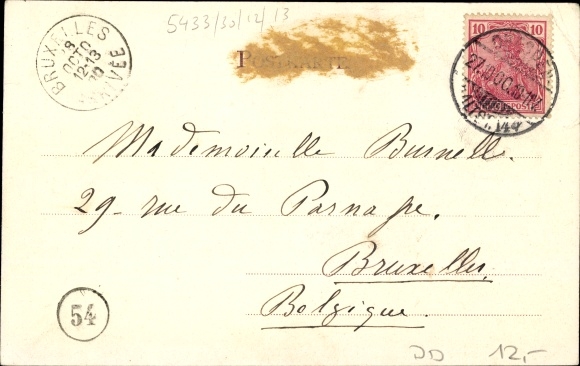 5433/30/12/13
BRUXELLES
28
OCTO
12-13
ARRIVÉE
POSTKARTE
10
Mademoiselle Burnell.
29 - rue du Parnasse.
Bruxelles.
Belgique.
54
DD 12,-